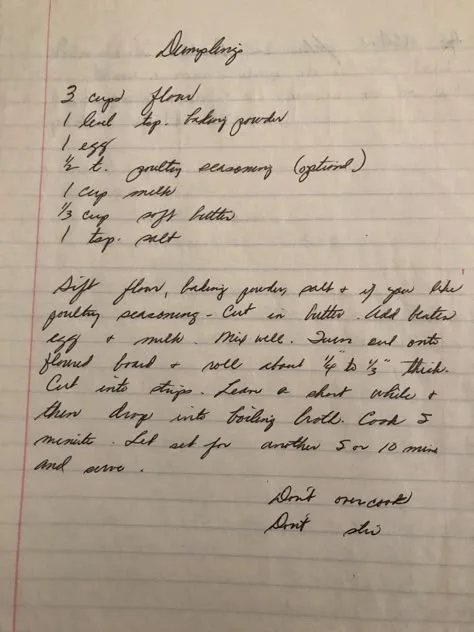 Dumplings
3 cups flour
1 level tsp. baking powder
1 egg
½ t. poultry seasoning (optional)
1 cup milk
⅓ cup soft butter
1 tsp. salt
Sift flour, baking powder, salt & if you like
poultry seasoning - Cut in butter. Add beaten
egg & milk. Mix well. Turn out onto
floured board & roll about ¼ to ⅓" thick.
Cut into strips. Leave a short while &
then drop into boiling broth. Cook 5
minute. Let set for another 5 or 10 mins
and serve.
Don't overcook
Don't stir